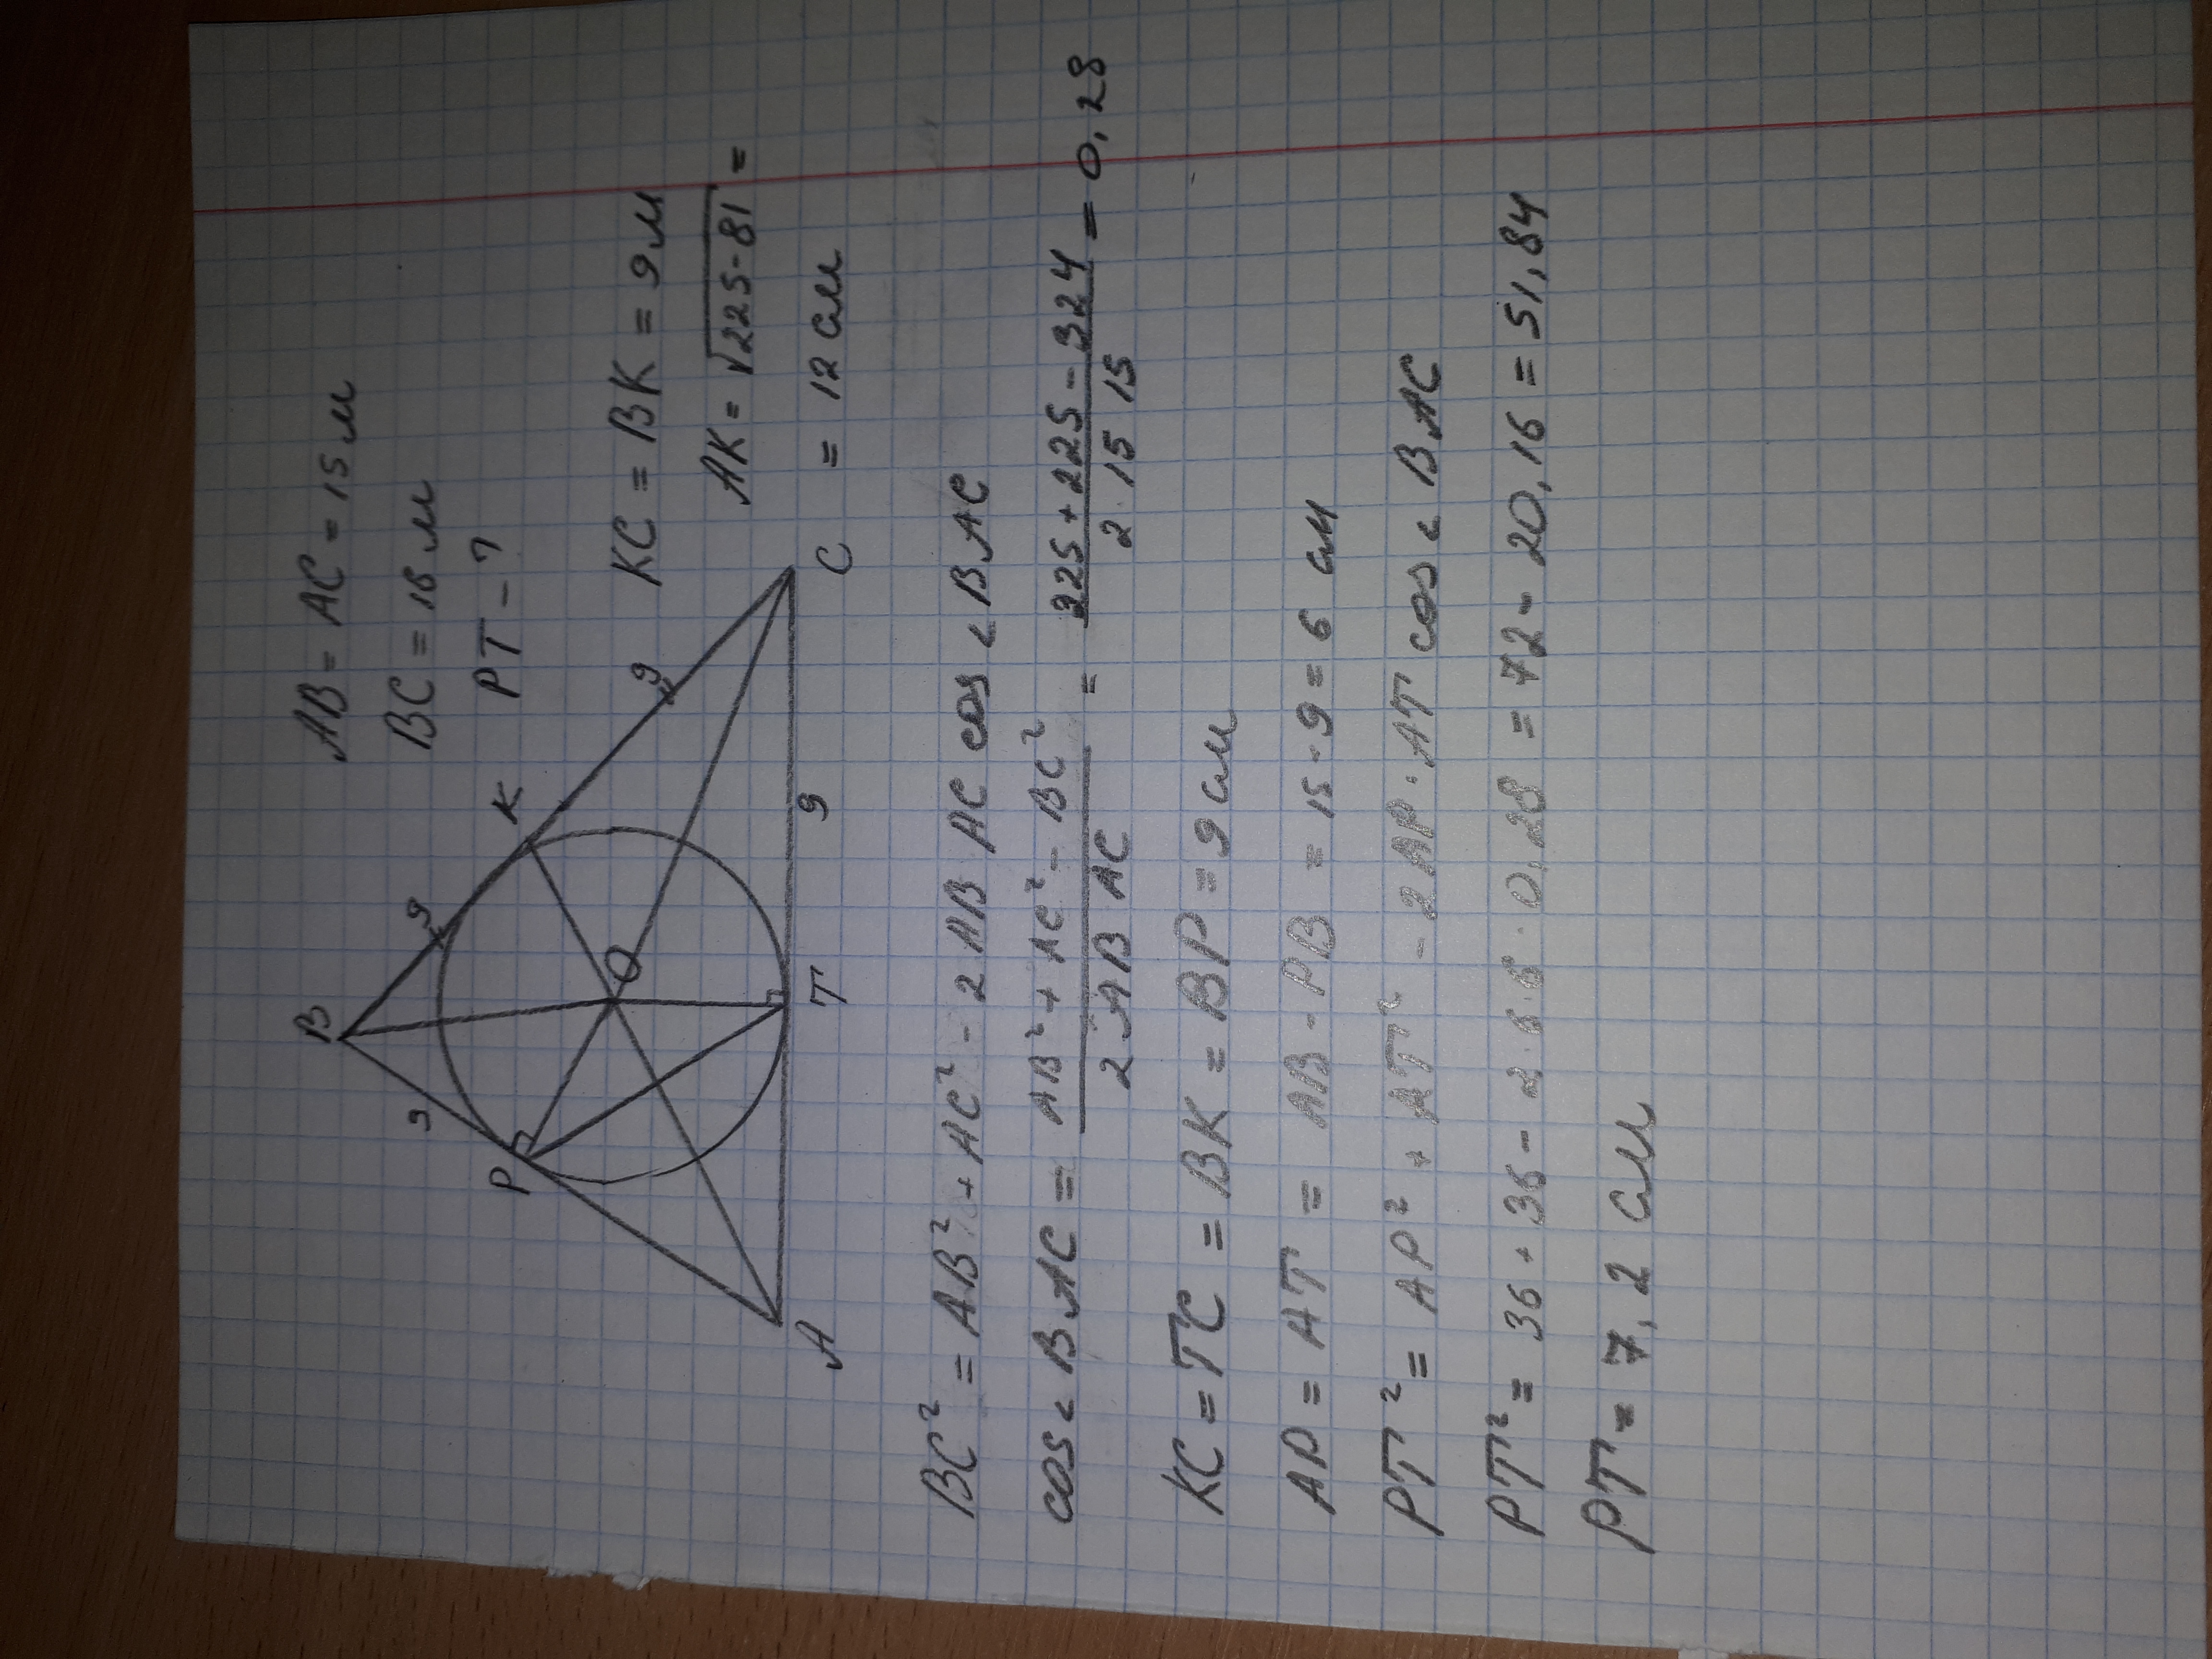 AB = AC = 15 м
BC = 18 м
PT - ?
B
9
9
K
P
O
9
9
A
T
C
KC = BK = 9 м
AK = √225-81 =
= 12 см
BC² = AB² + AC² - 2 AB AC cos < BAC
cos < BAC = AB² + AC² - BC² / 2 AB AC = 225 + 225 - 324 / 2 · 15 15 = 0,28
KC = TC = BK = BP = 9 см
AP = AT = AB - PB = 15 - 9 = 6 см
PT² = AP² + AT² - 2AP · AT cos < BAC
PT² = 36 + 36 - 2 · 6 · 6 · 0,28 = 72 - 20,16 = 51,84
PT = 7,2 см